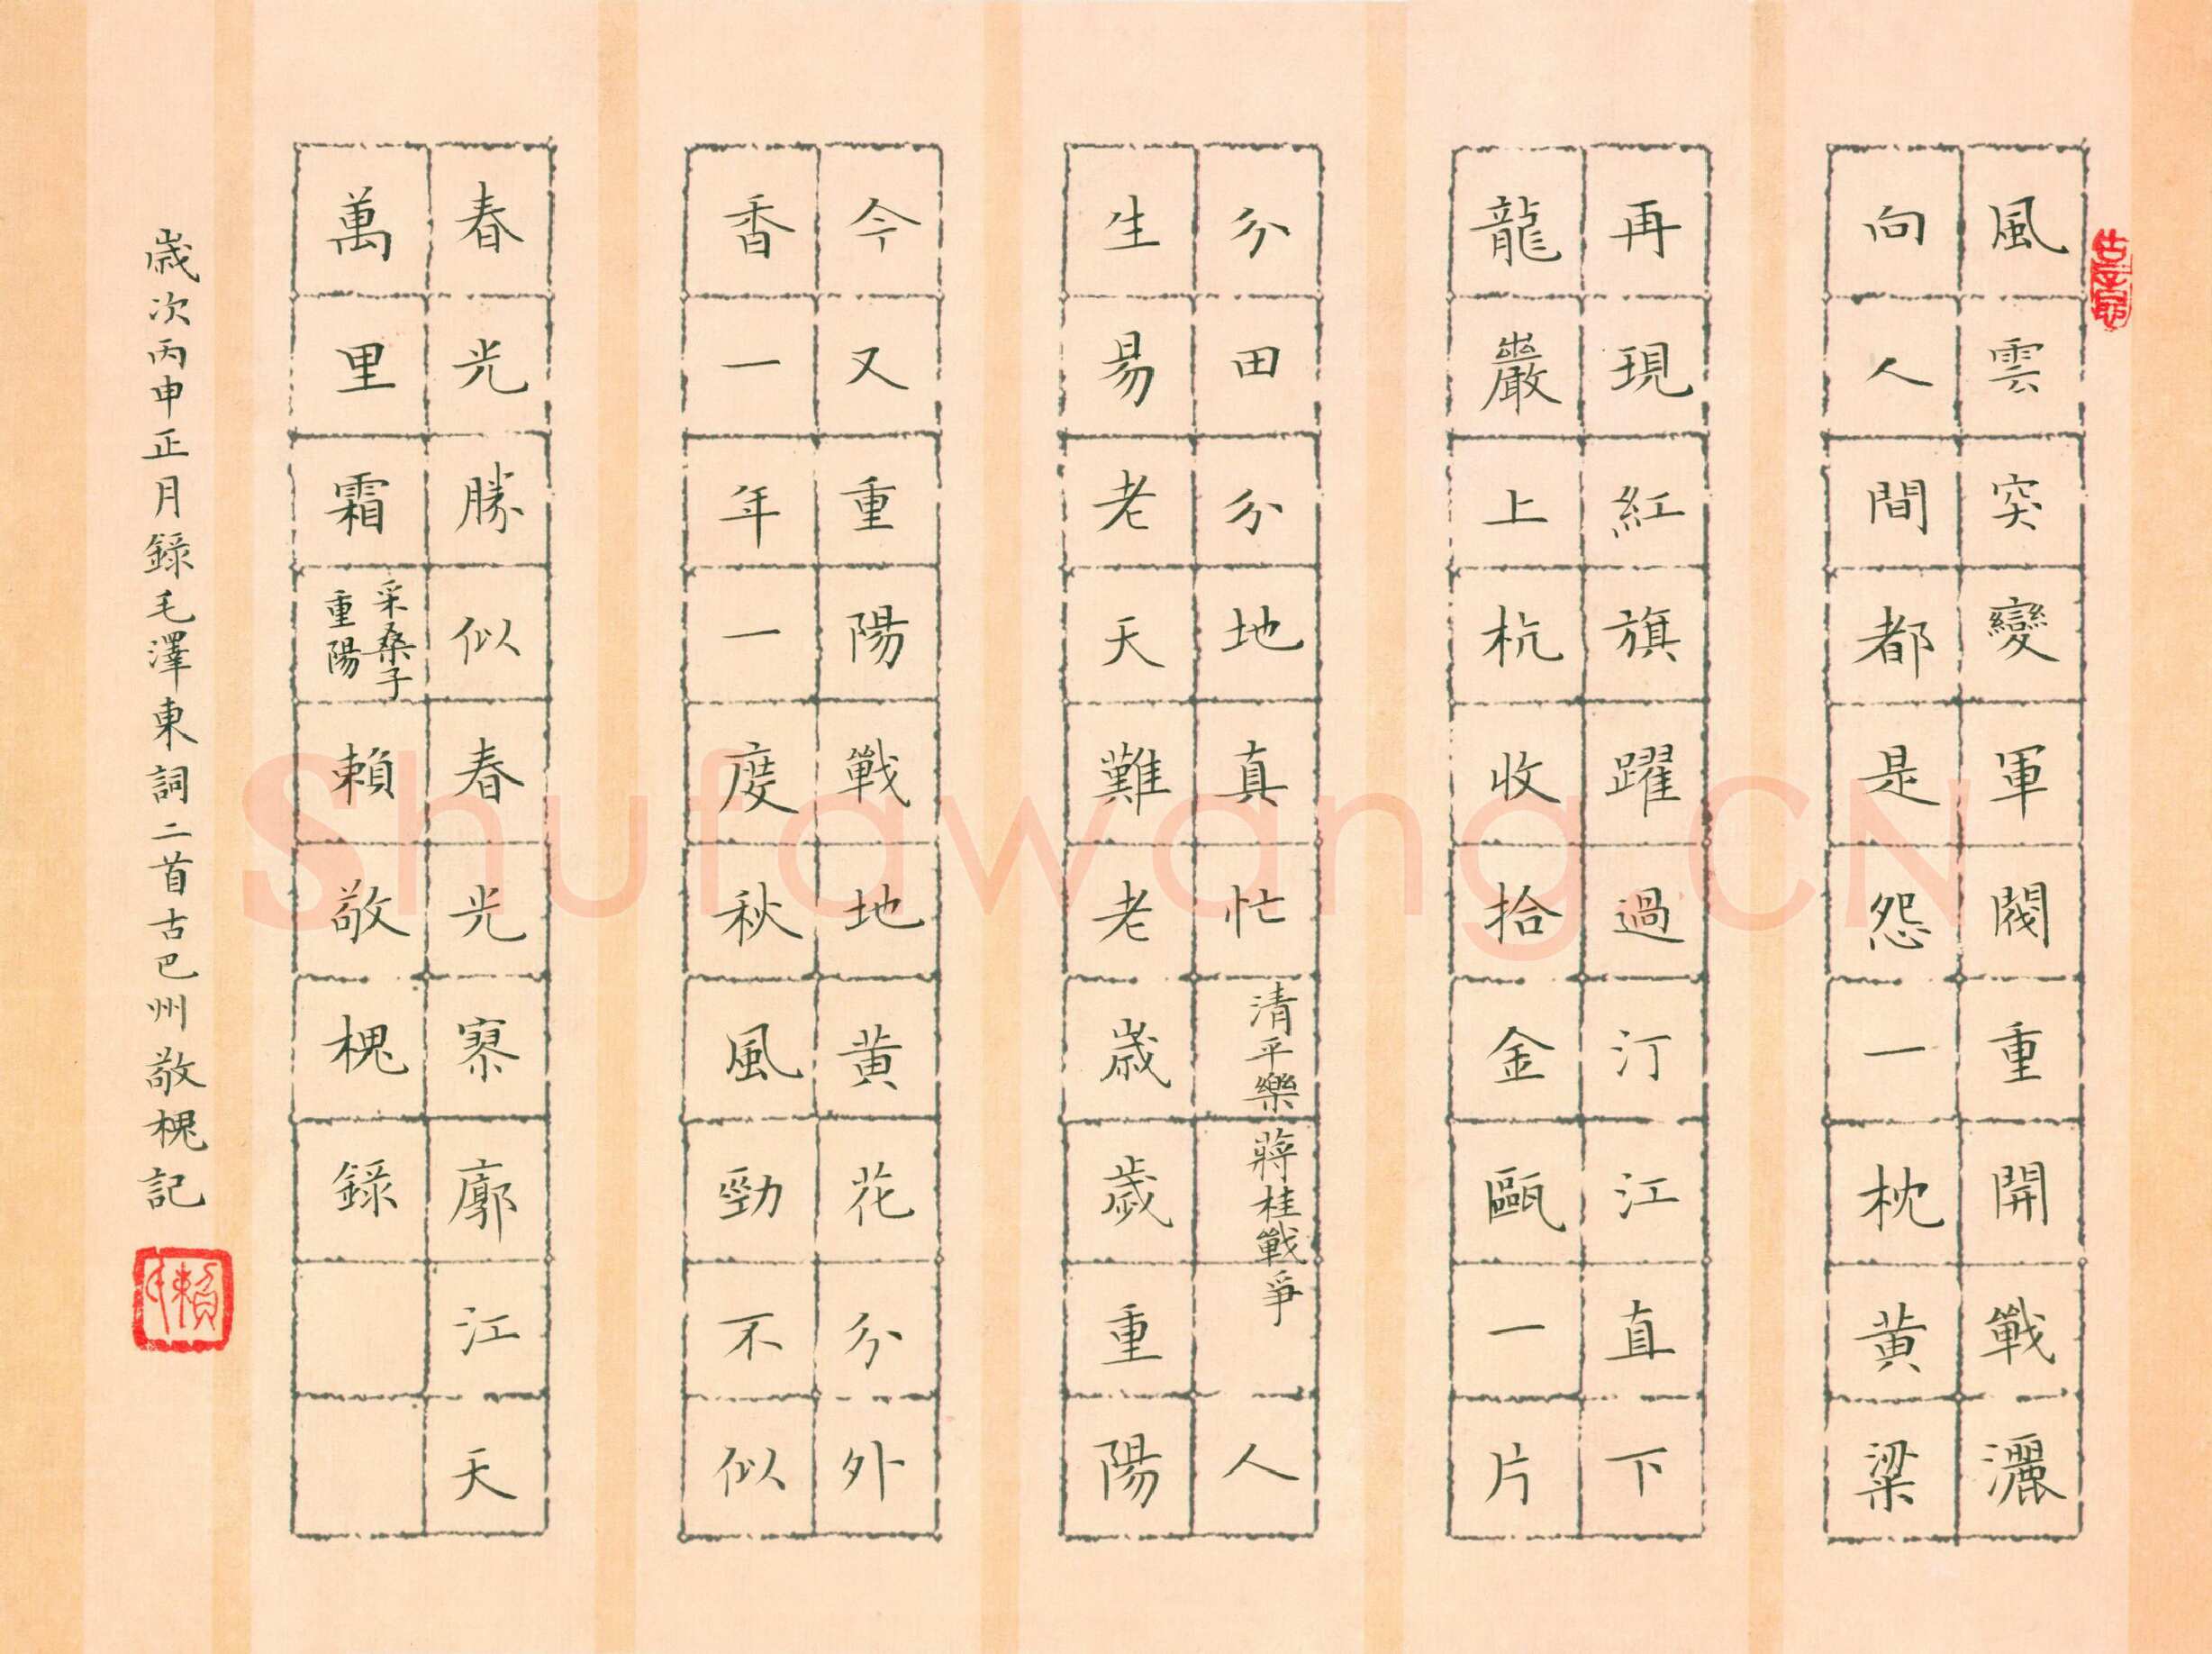 風雲突變軍閥重開戰灑
向人間都是怨一枕黄粱
再現紅旗躍過汀江直下
龍巖上杭收拾金甌一片
分田分地真忙清平樂蔣桂戰爭人
生易老天難老歲歲重陽
今又重陽戰地黄花分外
香一年一度秋風勁不似
春光勝似春光寥廓江天
萬里霜采桑子重陽賴敬槐錄
歲次丙申正月錄毛澤東詞二首古巴州敬槐記
Shufawang.CN